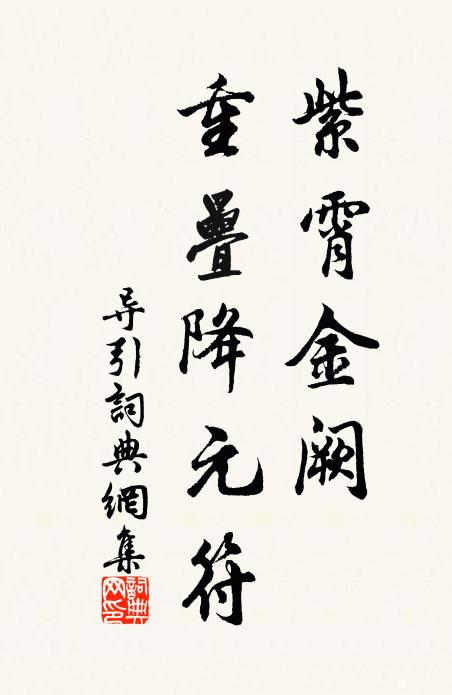 紫霄金阙
重疊降元符
导引詞典網集
詞典网印